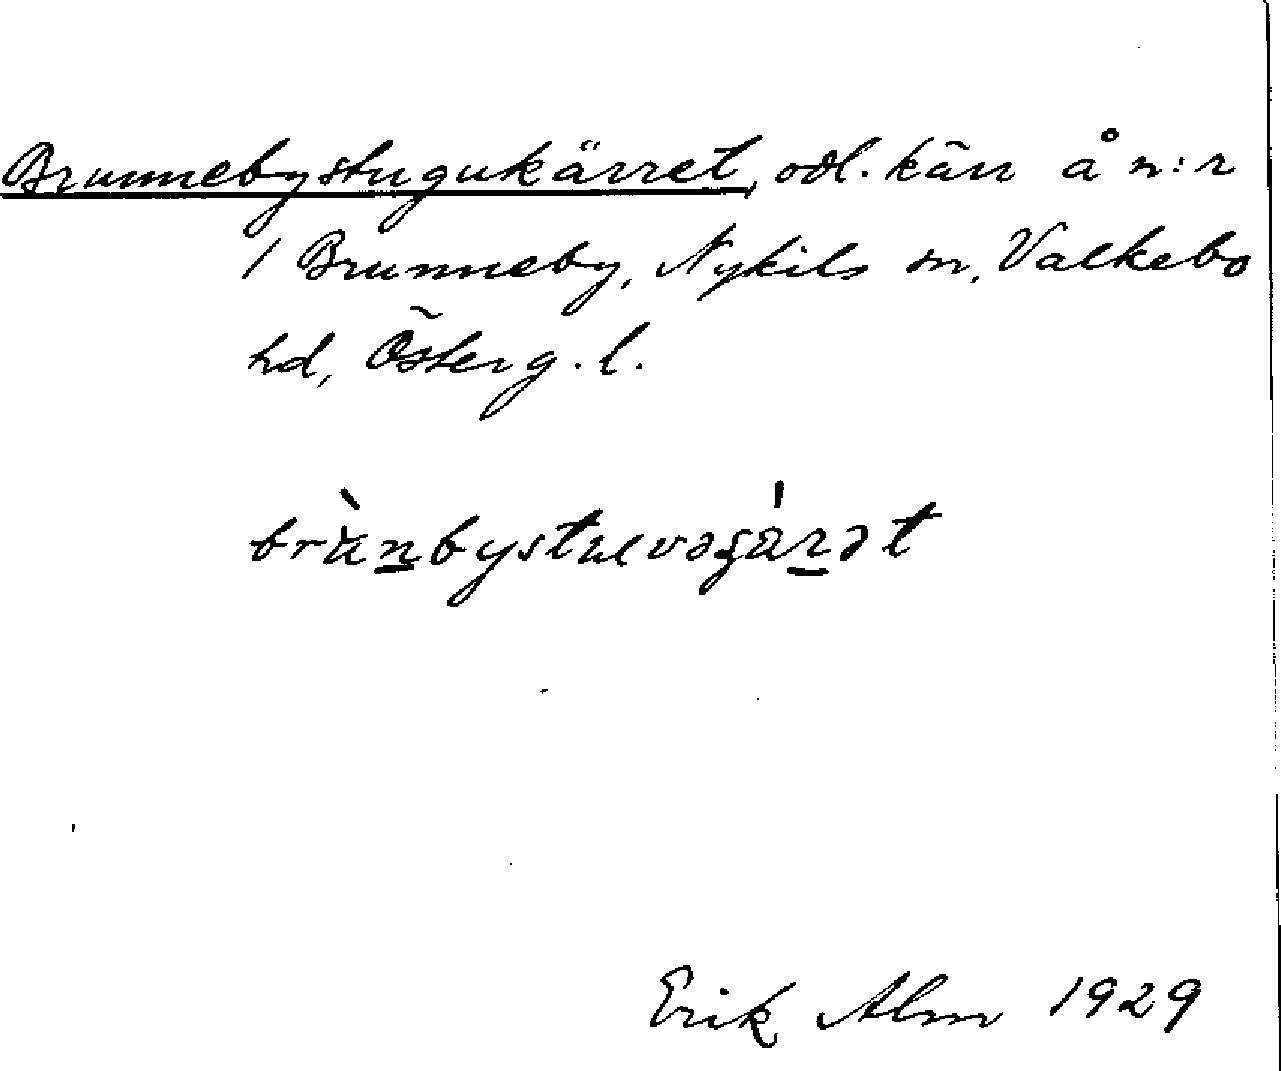 Brunnebystugukärret, odl. kärr å n:r
1 Brunneby, Nykils sn, Valkebo
hd, Österg. l.
Erik Alm 1929